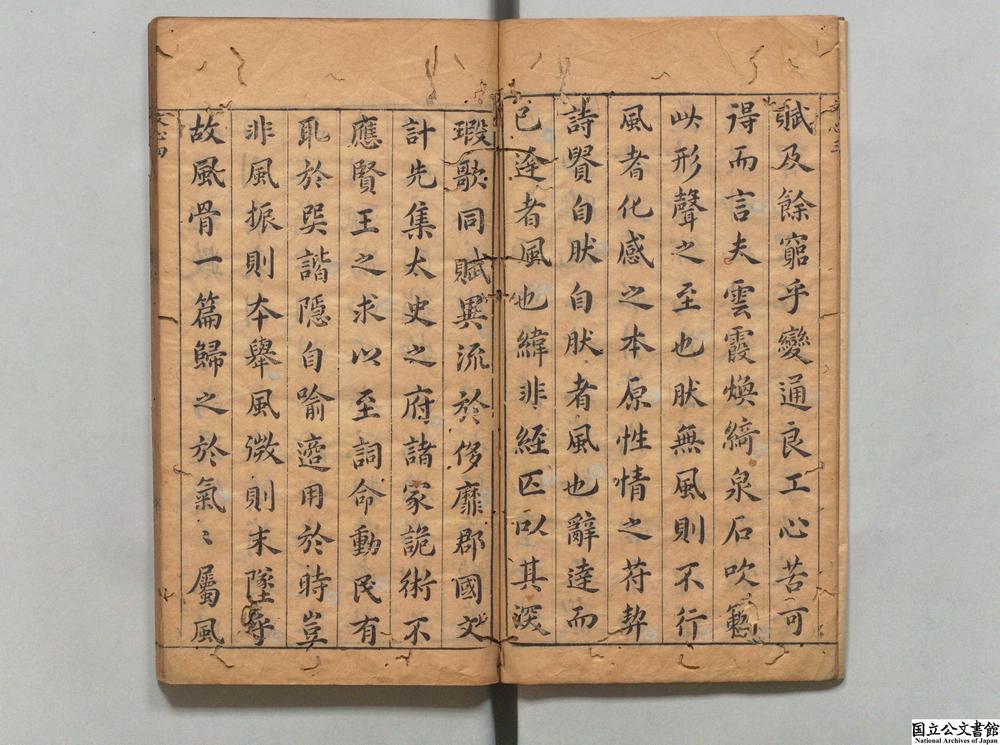 賦及餘窮乎變通良工心苦可
得而言夫雲霞煥綺泉石吹籟
此形聲之至也肰無風則不行
風者化感之本原性情之符契
詩貴自肰自肰者風也辭達而
已達者風也緯非經匹以其深
瑕歌同賦異流於侈靡郡國文
計先集太史之府諸家詭術不
應賢王之求以至詞命動民有
取於巽諧隱自喻適用於時豈
非風振則本舉風微則末墜乎
故風骨一篇歸之於氣〻屬風
文心四
国立公文書館
National Archives of Japan